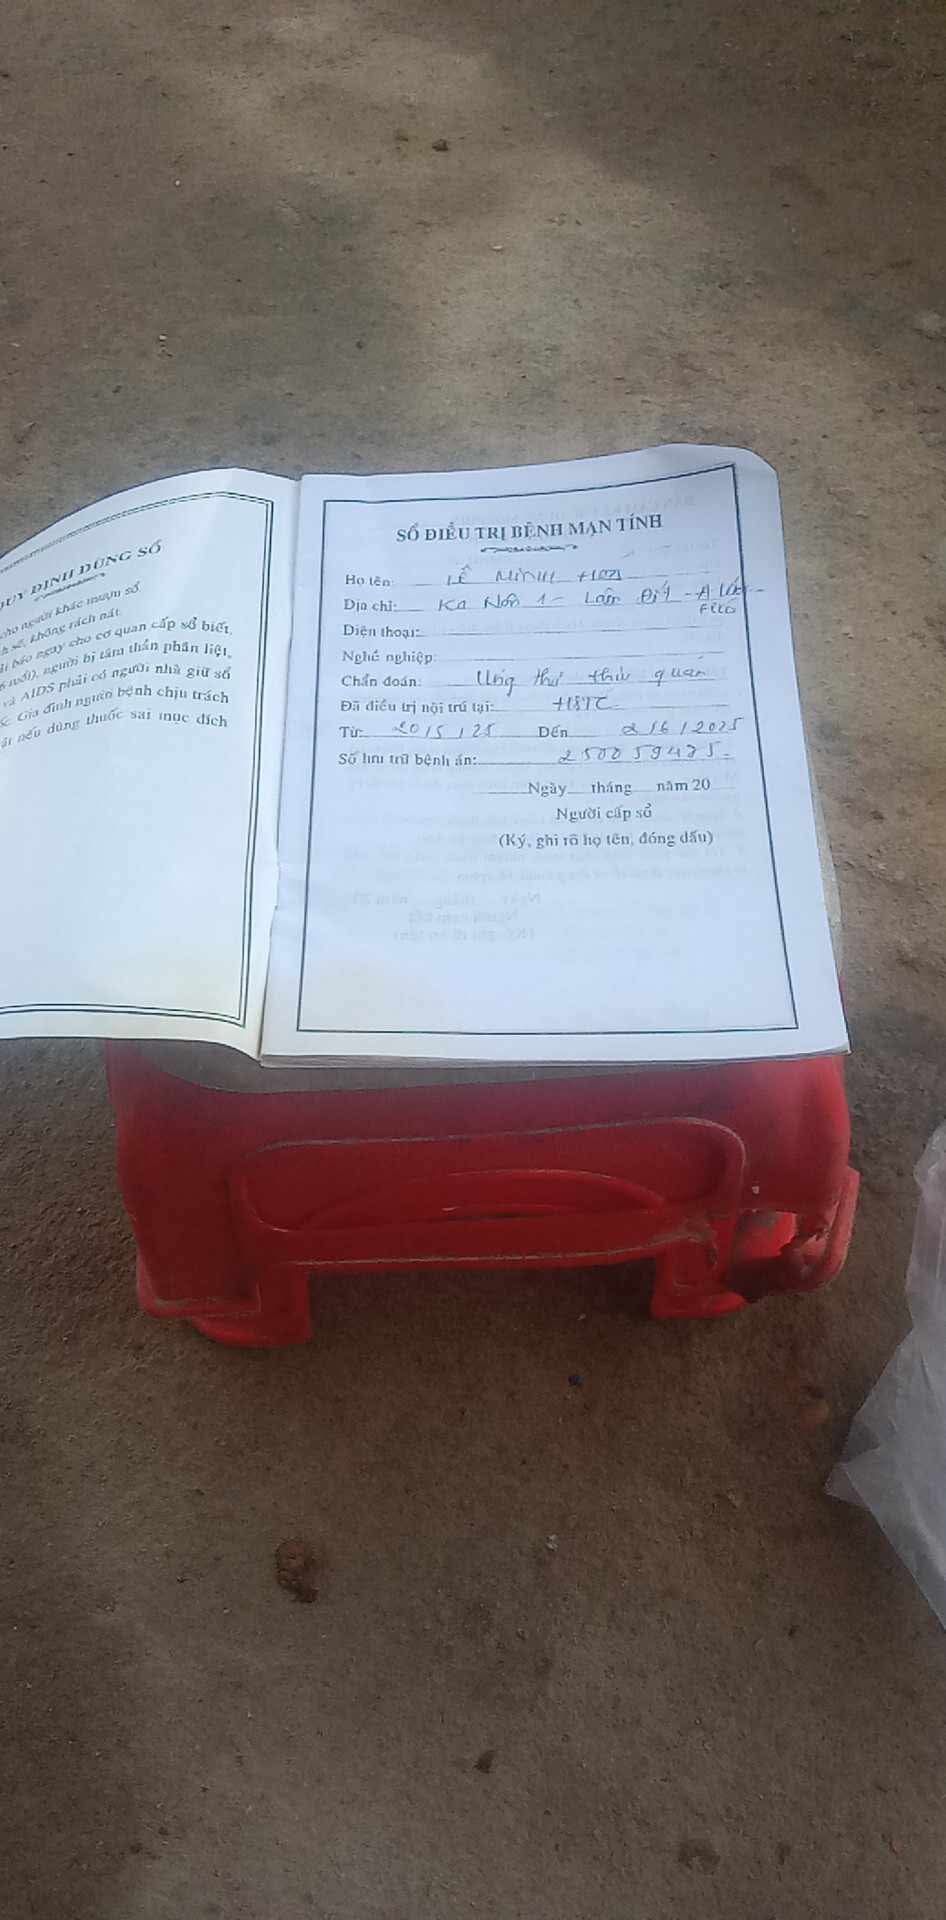 QUY ĐỊNH DÙNG SỔ
cho người khác mượn sổ
sẽ, không rách nát.
báo ngay cho cơ quan cấp sổ biết.
6 tuổi), người bị tâm thần phân liệt,
và AIDS phải có người nhà giữ sổ
Gia đình người bệnh chịu trách
nếu dùng thuốc sai mục đích
SỔ ĐIỀU TRỊ BỆNH MẠN TÍNH
Họ tên: LÊ MINH
Địa chỉ: Ka Nôn 1 -
Điện thoại:
Nghề nghiệp:
Chẩn đoán: Ung thư thực quản
Đã điều trị nội trú tại:
Từ: 20/5/25 Đến 2/6/2025
Số lưu trữ bệnh án:
Ngày tháng năm 20
Người cấp sổ
(Ký, ghi rõ họ tên, đóng dấu)